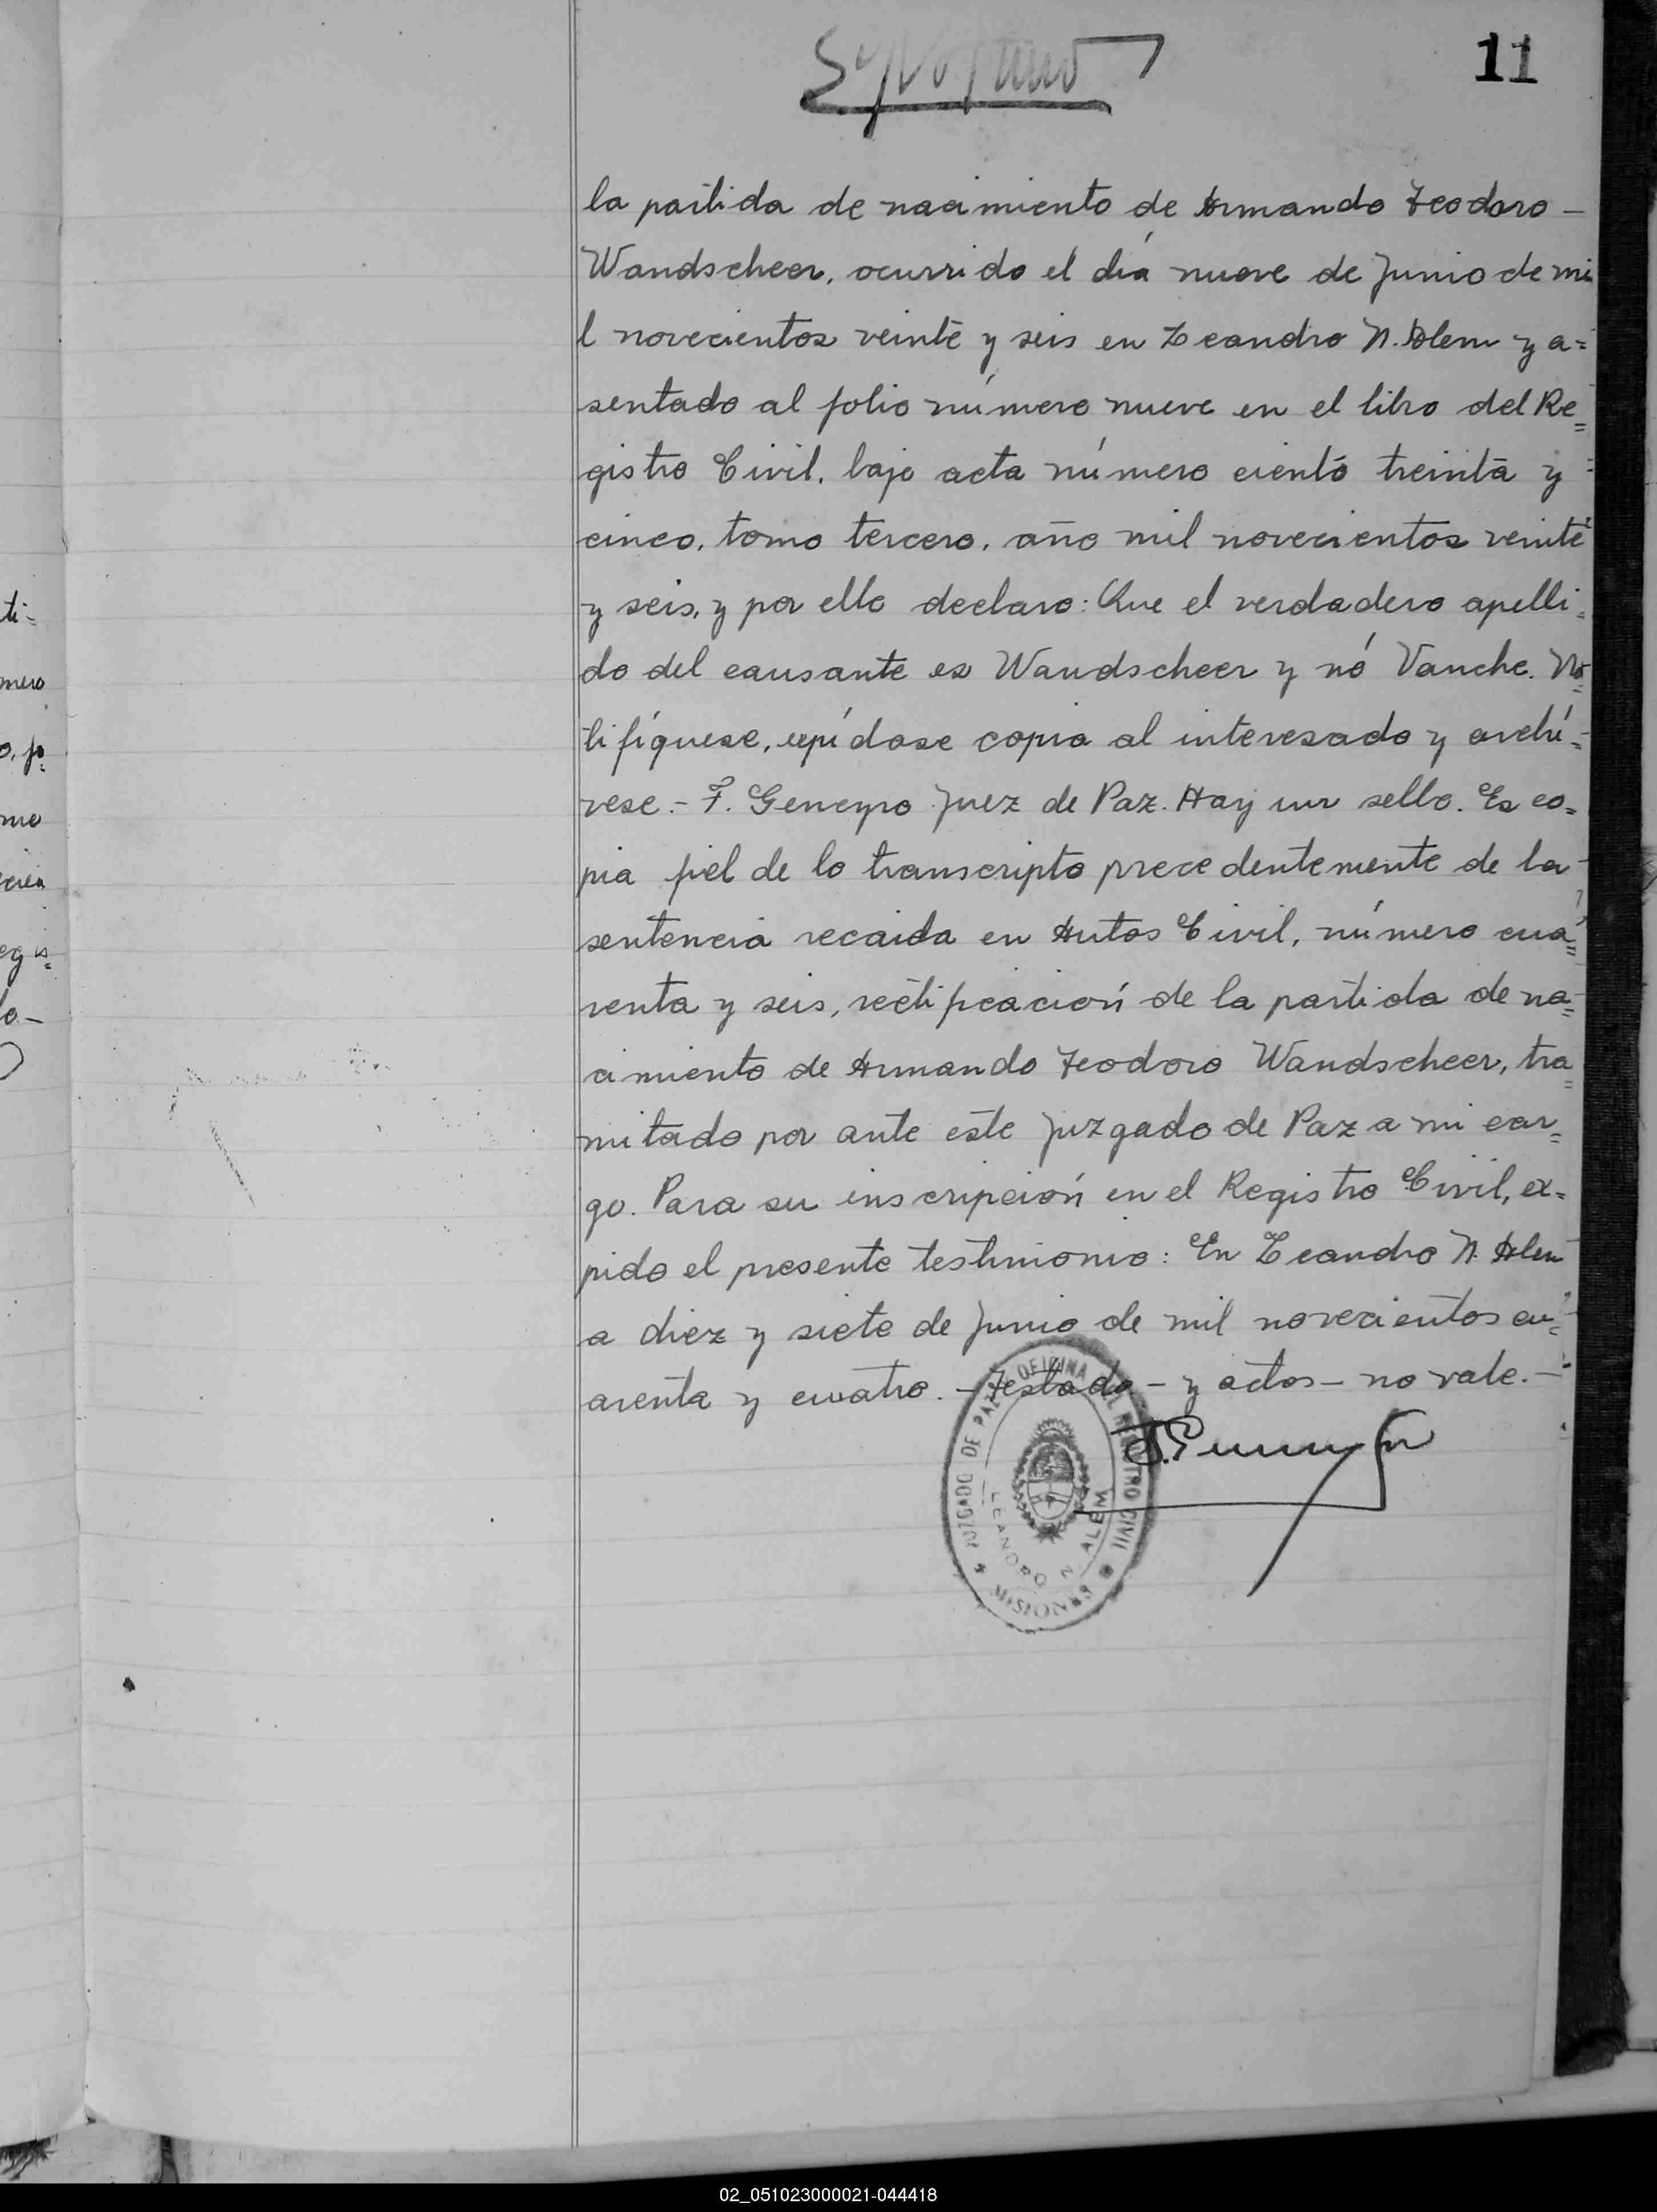 11
la partida de nacimiento de Armando Teodoro -
Wandscheer, ocurrido el día nueve de Junio de mi
l novecientos veinte y seis en Leandro N. Alem y a=
sentado al folio número nueve en el libro del Re=
gistro Civil, bajo acta número ciento treinta y =
cinco, tomo tercero, año mil novecientos veinte
y seis, y por ello declaro: Que el verdadero apelli=
do del causante es Wandscheer y nó Vanche. No=
tifíquese, expídase copia al interesado y archí=
vese.- F. Geneyro Juez de Paz. Hay un sello. Es co=
pia fiel de lo transcripto precedentemente de la
sentencia recaida en Autos Civil, número cua=
renta y seis, rectificación de la partida de na=
cimiento de Armando Teodoro Wandscheer, tra=
mitado por ante este Juzgado de Paz a mi car=
go. Para su inscripción en el Registro Civil, ex=
pido el presente testimonio: En Leandro N. Alem
a diez y siete de Junio de mil novecientos cu=
arenta y cuatro. - Testado - y actos - no vale. -
JUZGADO DE PAZ OFICINA DEL REGISTRO CIVIL
LEANDRO N. ALEM
MISIONES
ti-
mero
egis=
lo-
02_051023000021-044418